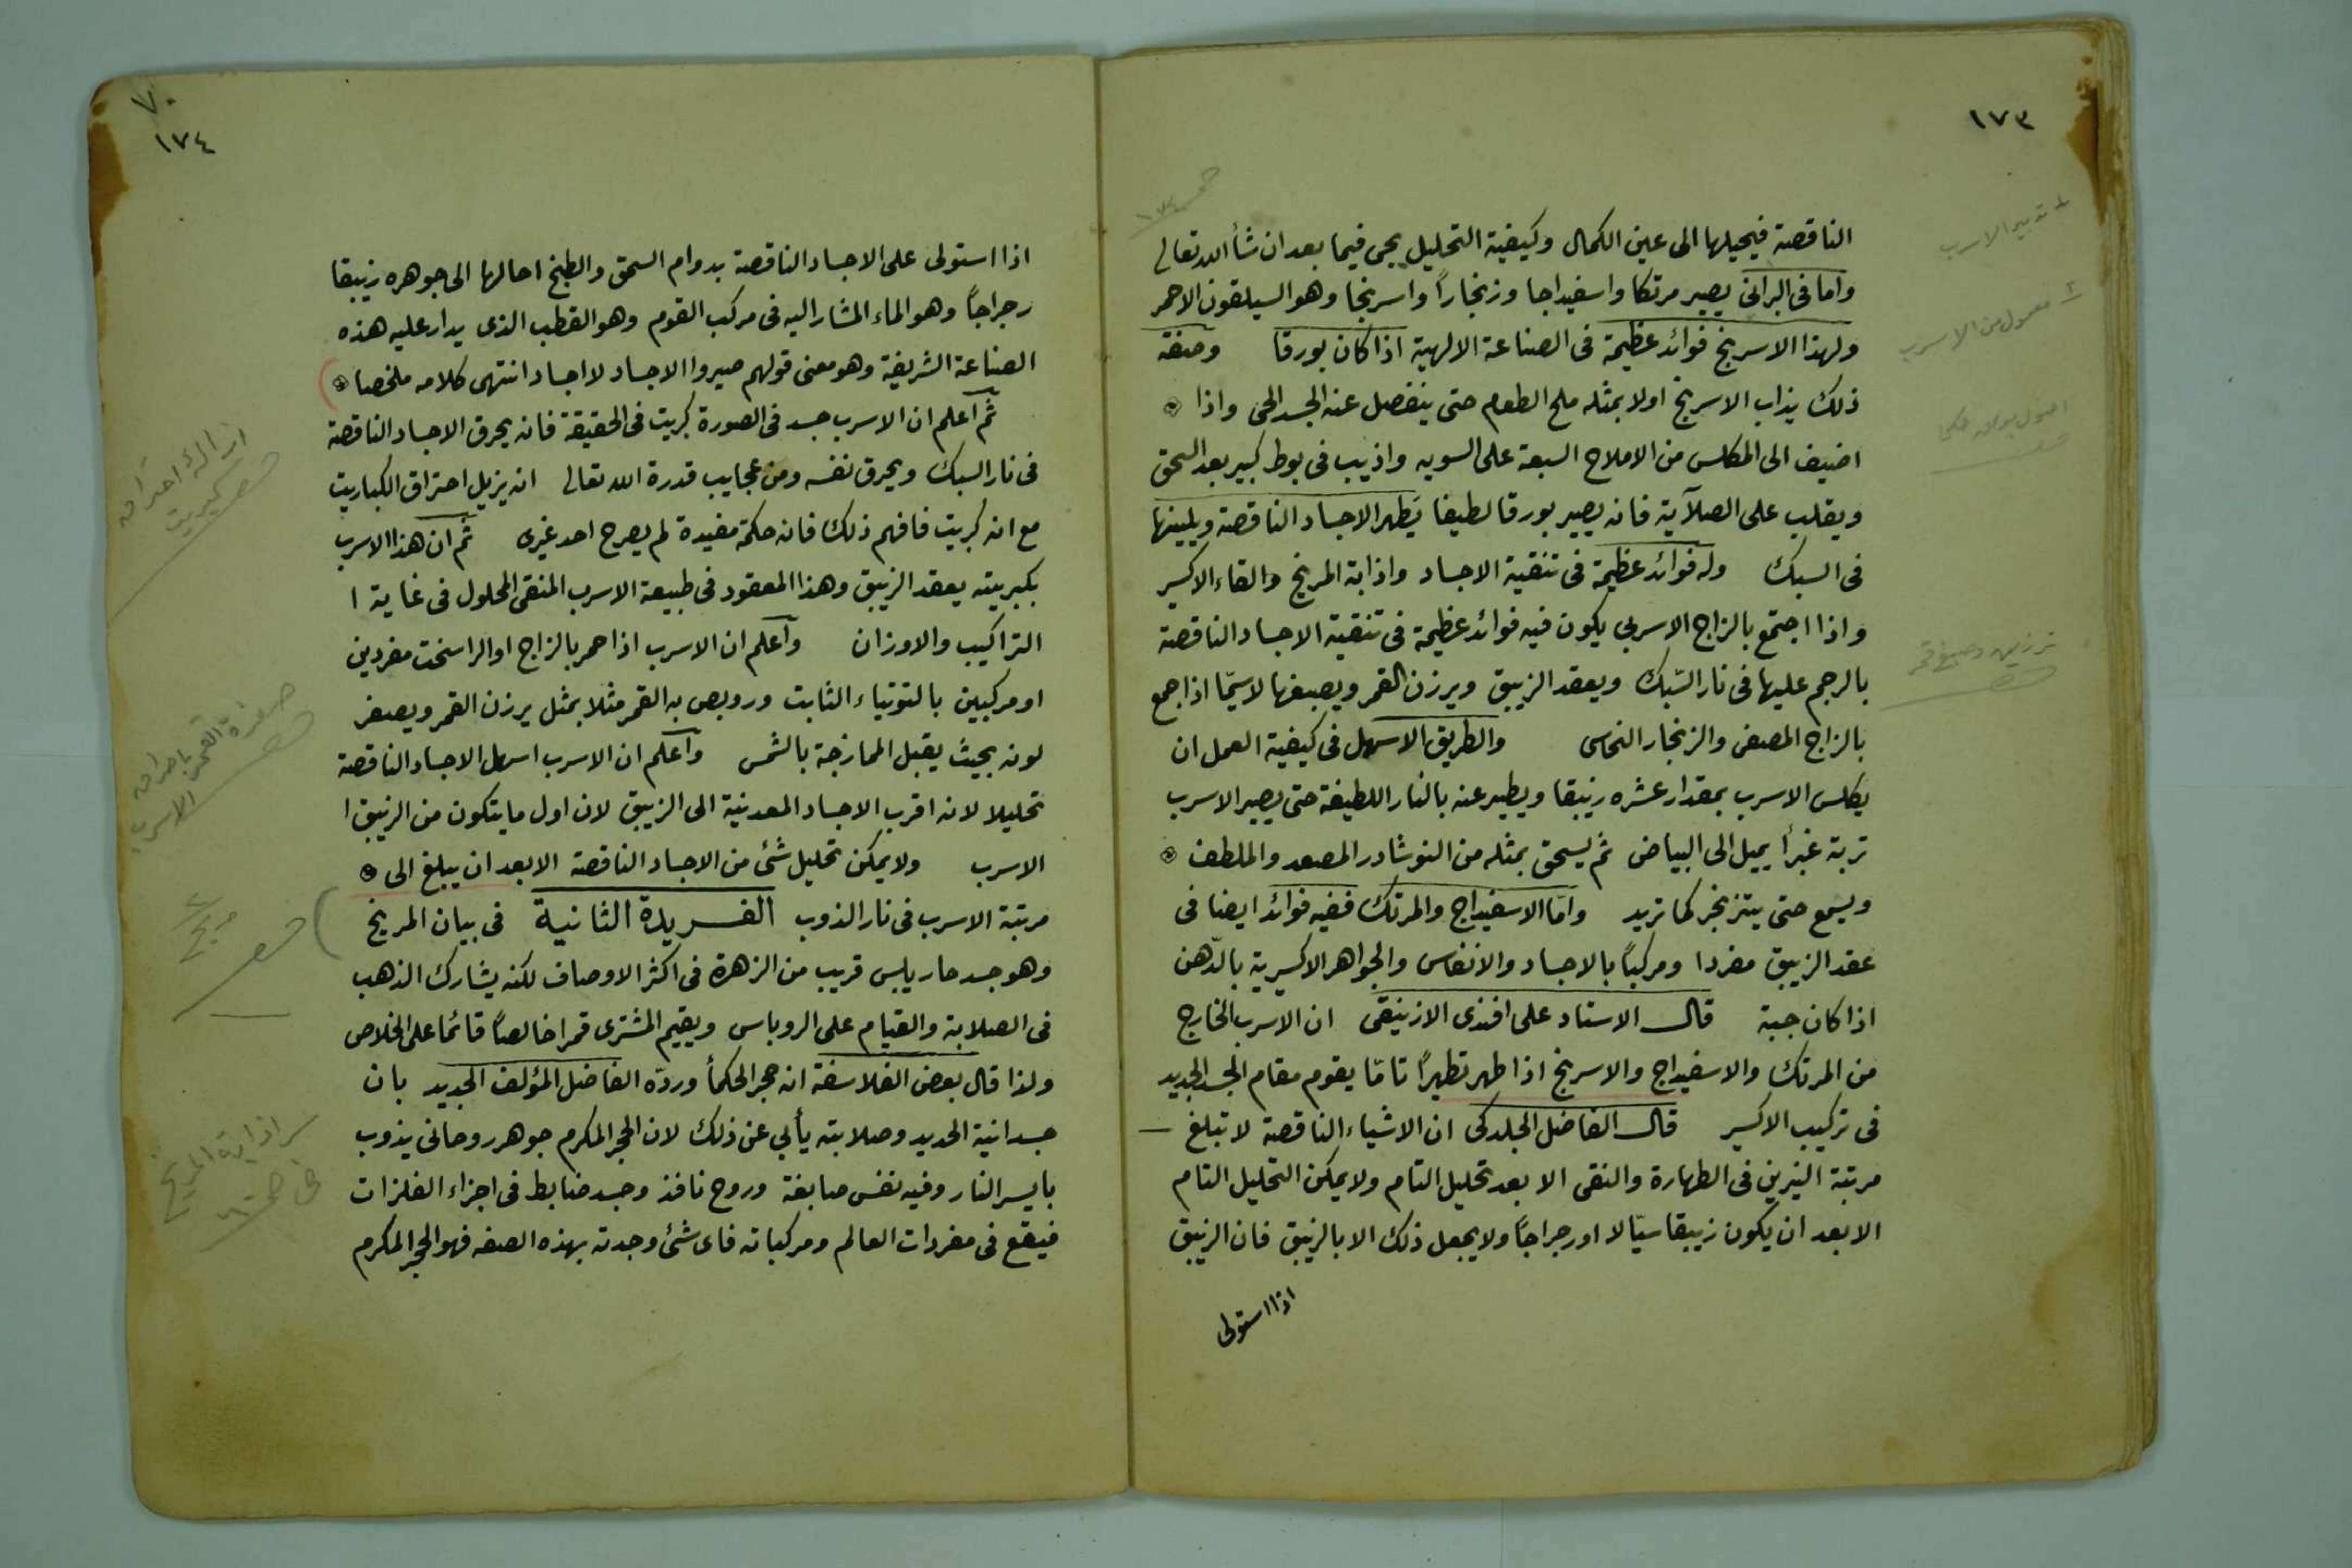 ١٧٣
الناقصة فيحيلها الى عين الكمال وكيفية التحليل يجى فيما بعد ان شأ الله تعالى
واما فى البرانى يصير مرتكا واسفيداجا وزنجاراً واسرنجا وهو السيلقون الاحمر
ولهذا الاسرنج فوائد عظيمة فى الصناعة الالهية اذا كان بورقا وصفة
ذلك يذاب الاسرنج اولا بمثله ملح الطعام حتى ينفصل عنه الجسد الحى واذا
اضيف الى المكلس من الاملاح السبعة على السويه واذيب فى بوط كبير بعد السحق
ويقلب على الصلآية فانه يصير بورقا لطيفا يَطهر الاجساد الناقصة ويلينها
فى السبك وله فوائد عظيمة فى تنقية الاجساد واذابة المريخ والقاء الاكسير
واذا اجتمع بالزاج الاسربى يكون فيه فوائد عظيمة فى تنقية الاجساد الناقصة
بالرجم عليها فى نار السّبك ويعقد الزيبق ويرزن القمر ويصبغها لاسيّما اذا جمع
بالزاج المصفى والزنجار النحاسى والطريق الاسهل فى كيفية العمل ان
يكلس الاسرب بمقدار عشره زيبقا ويطير عنه بالنار اللطيفة حتى يصير الاسرب
تربة غبرأ يميل الى البياض ثم يسحق بمثله من النوشادر المصعد والملطف
ويسمع حتى يتزنجر كما تريد وامّا الاسفيداج والمرتك ففيه فوائد ايضا فى
عقد الزيبق مفردا ومركباً بالاجساد والانفاس والجواهر الاكسيرية بالدّهن
اذا كان جبة قال الاستاد على افندى الازنيقى ان الاسرب الخارج
من المرتك والاسفيداج والاسرنج اذا طهر تطهيراً تامّا يقوم مقام الجسد الجديد
فى تركيب الاكسير قال الفاضل الجلدكى ان الاشياء الناقصة لا تبلغ
مرتبة النيرين فى الطهارة والنقى الا بعد تحليل التام ولا يمكن التحليل التام
الا بعد ان يكون زيبقا سيّالا اورجراجاً ولا يجعل ذلك الا بالزيبق فان الزيبق
اذا استولى
٧٠
١٧٤
اذا استولى على الاجساد الناقصة بدوام السحق والطبخ احالها الى جوهره زيبقا
رجراجاً وهو الماء المشار اليه فى مركب القوم وهو القطب الذى يدار عليه هذه
الصناعة الشريفة وهو معنى قولهم صيروا الاجساد لا اجساد انتهى كلامه ملخصا
ثم آعلم ان الاسرب جسد فى الصورة كبريت فى الحقيقة فانه يحرق الاجساد الناقصة
فى نار السبك ويحرق نفسه ومن عجايب قدرة الله تعالى انه يزيل احتراق الكباريت
مع انه كبريت فافهم ذلك فانه حكمة مفيدة لم يصرح احد غيرى ثم ان هذا الاسرب
بكبريته يعقد الزيبق وهذا المعقود فى طبيعة الاسرب المنقى المحلول فى غاية ا
التراكيب والاوزان وآعلم ان الاسرب اذا حمر بالزاج او الراسخت مفردين
او مركبين بالتوتياء الثابت وروبص به القمر مثلا بمثل يرزن القمر ويصفر
لونه بحيث يقبل الممازجة بالشمس وآعلم ان الاسرب اسهل الاجساد الناقصة
تحليلا لانه اقرب الاجساد المعدنية الى الزيبق لان اول ما يتكون من الزيبق ا
الاسرب ولا يمكن تحليل شئ من الاجساد الناقصة الا بعد ان يبلغ الى
مرتبة الاسرب فى نار الذوب الفريدة الثانية فى بيان المريخ
وهو جسد حار يابس قريب من الزهرة فى اكثر الاوصاف لكنه يشارك الذهب
فى الصلابة والقيام على الروباس ويقيم المشترى قمرا خالصاً قائما على الخلاص
ولذا قال بعض الفلاسفة انه حجر الحكمأ وردّه الفاضل المؤلف الجديد بان
جسدانية الحديد وصلابته يأبى عن ذلك لان الحجر المكرم جوهر روحانى يذوب
بايسر النار وفيه نفس صابغة وروح نافذ وجسد ضابط فى اجزاء الفلزات
فيقع فى مفردات العالم ومركباته فاى شئ وجدته بهذه الصفه فهو الحجر المكرم